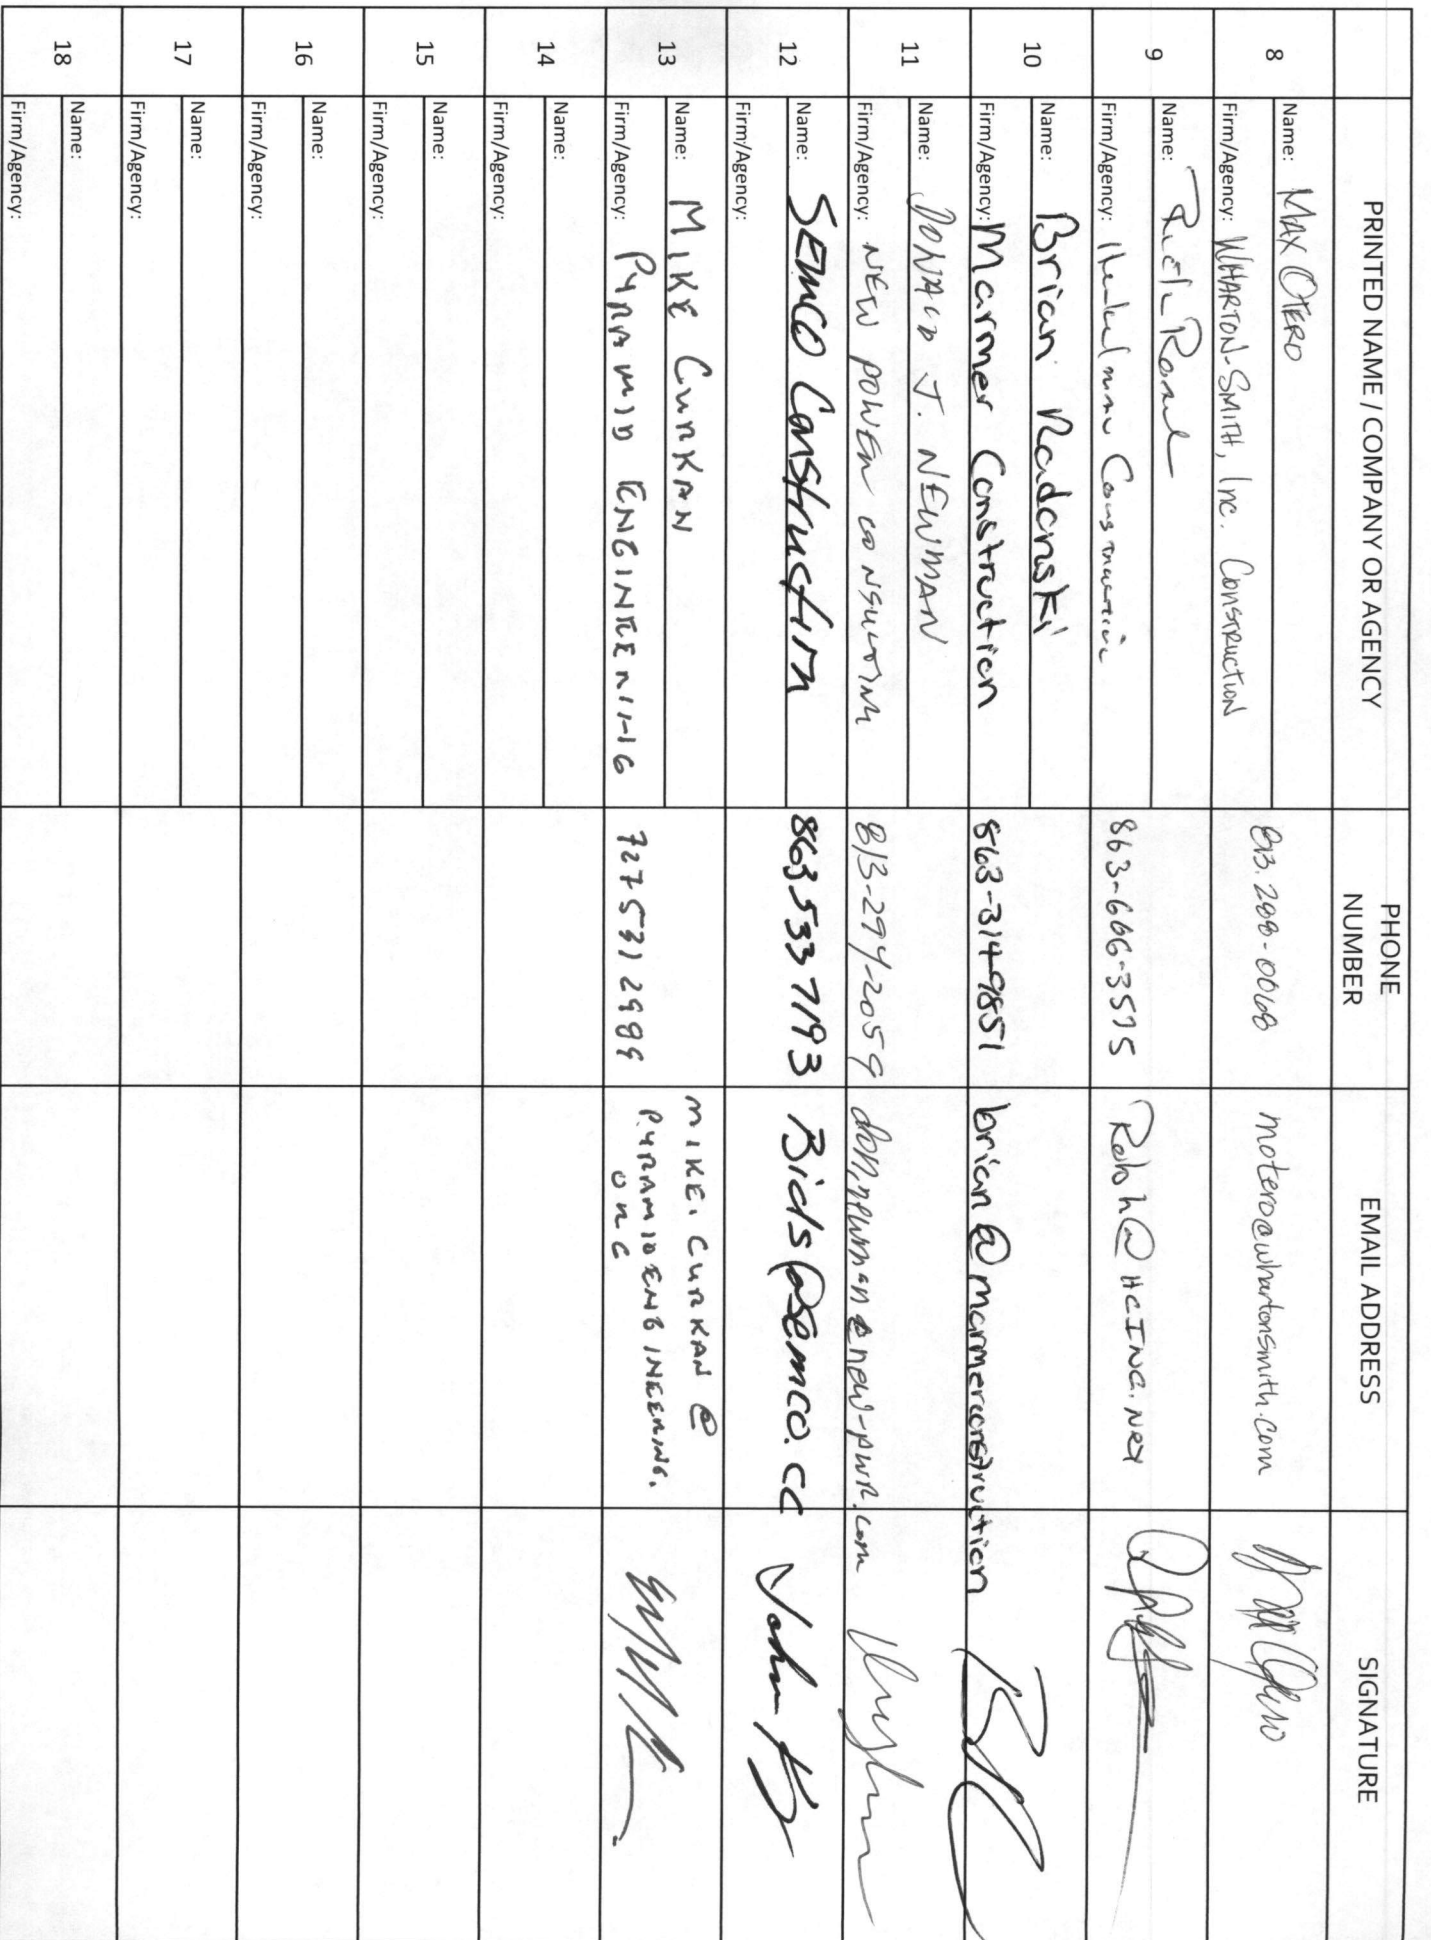 PRINTED NAME / COMPANY OR AGENCY PHONE NUMBER EMAIL ADDRESS SIGNATURE
8 Name: MAX OTERO
Firm/Agency: WHARTON-SMITH, Inc. CONSTRUCTION 813.288-0068 motero@whartonsmith.com
9 Name:
Firm/Agency: 863-666-3575 @HCINC.NET
10 Name: Brian Radanski
Firm/Agency: Marmer Construction 863-314-9851 brian@marmerconstruction
11 Name: DONALD J. NEWMAN
Firm/Agency: NEW POWER CONSULTING 813-294-2059 don.newman@new-pwr.com
12 Name: SEMCO Construction 863 533 7193 Bids@semco.cc John
Firm/Agency:
13 Name: MIKE CURKAN
Firm/Agency: PYRAMID ENGINEERING 727 531 2989 MIKE.CURKAN@
PYRAMIDENGINEERING.
ORG
14 Name:
Firm/Agency:
15 Name:
Firm/Agency:
16 Name:
Firm/Agency:
17 Name:
Firm/Agency:
18 Name:
Firm/Agency: